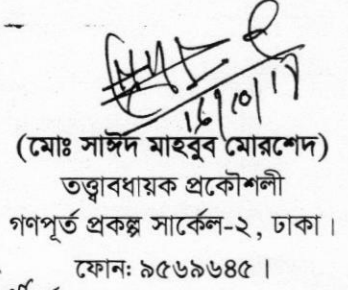 ১৫/১০/১৭
(মোঃ সাঈদ মাহবুব মোরশেদ)
তত্ত্বাবধায়ক প্রকৌশলী
গণপূর্ত প্রকল্প সার্কেল-২, ঢাকা।
ফোন: ৯৫৬৯৬৪৫।